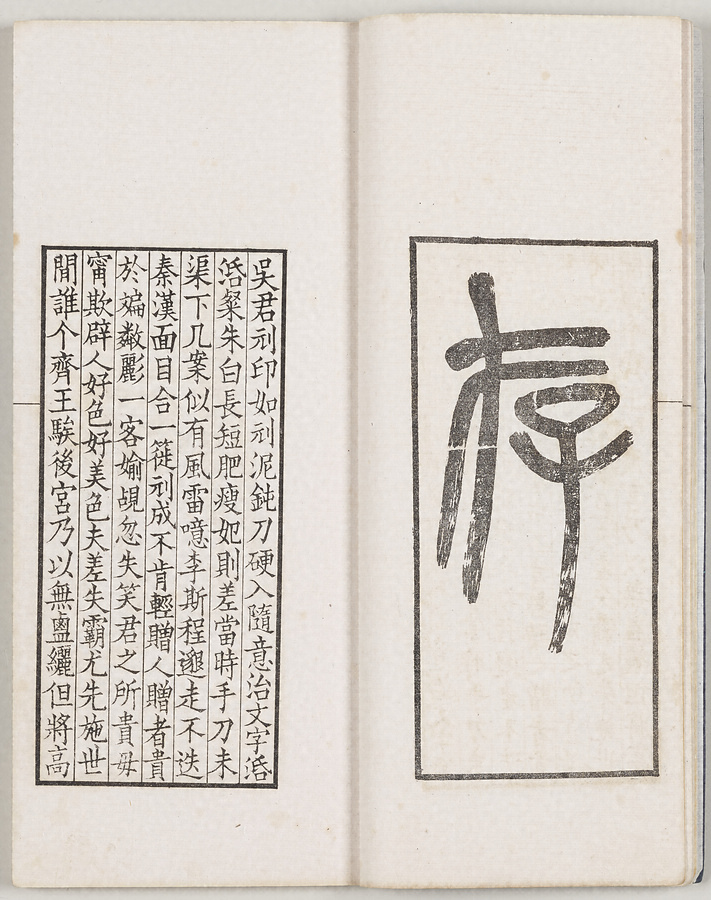 存
吳君刓印如刓泥鈍刀硬入隨意治文字活
活粲朱白長短肥瘦妃則差當時手刀未
渠下几案似有風雷噫李斯程邈走不迭
秦漢面目合一蓰刓成不肯輕贈人贈者貴
於斒斕麗一客媮覘忽失笑君之所貴毋
甯欺辟人好色好美色夫差失霸尤先施世
閒誰个齊王騃後宮乃以無鹽纚但將高